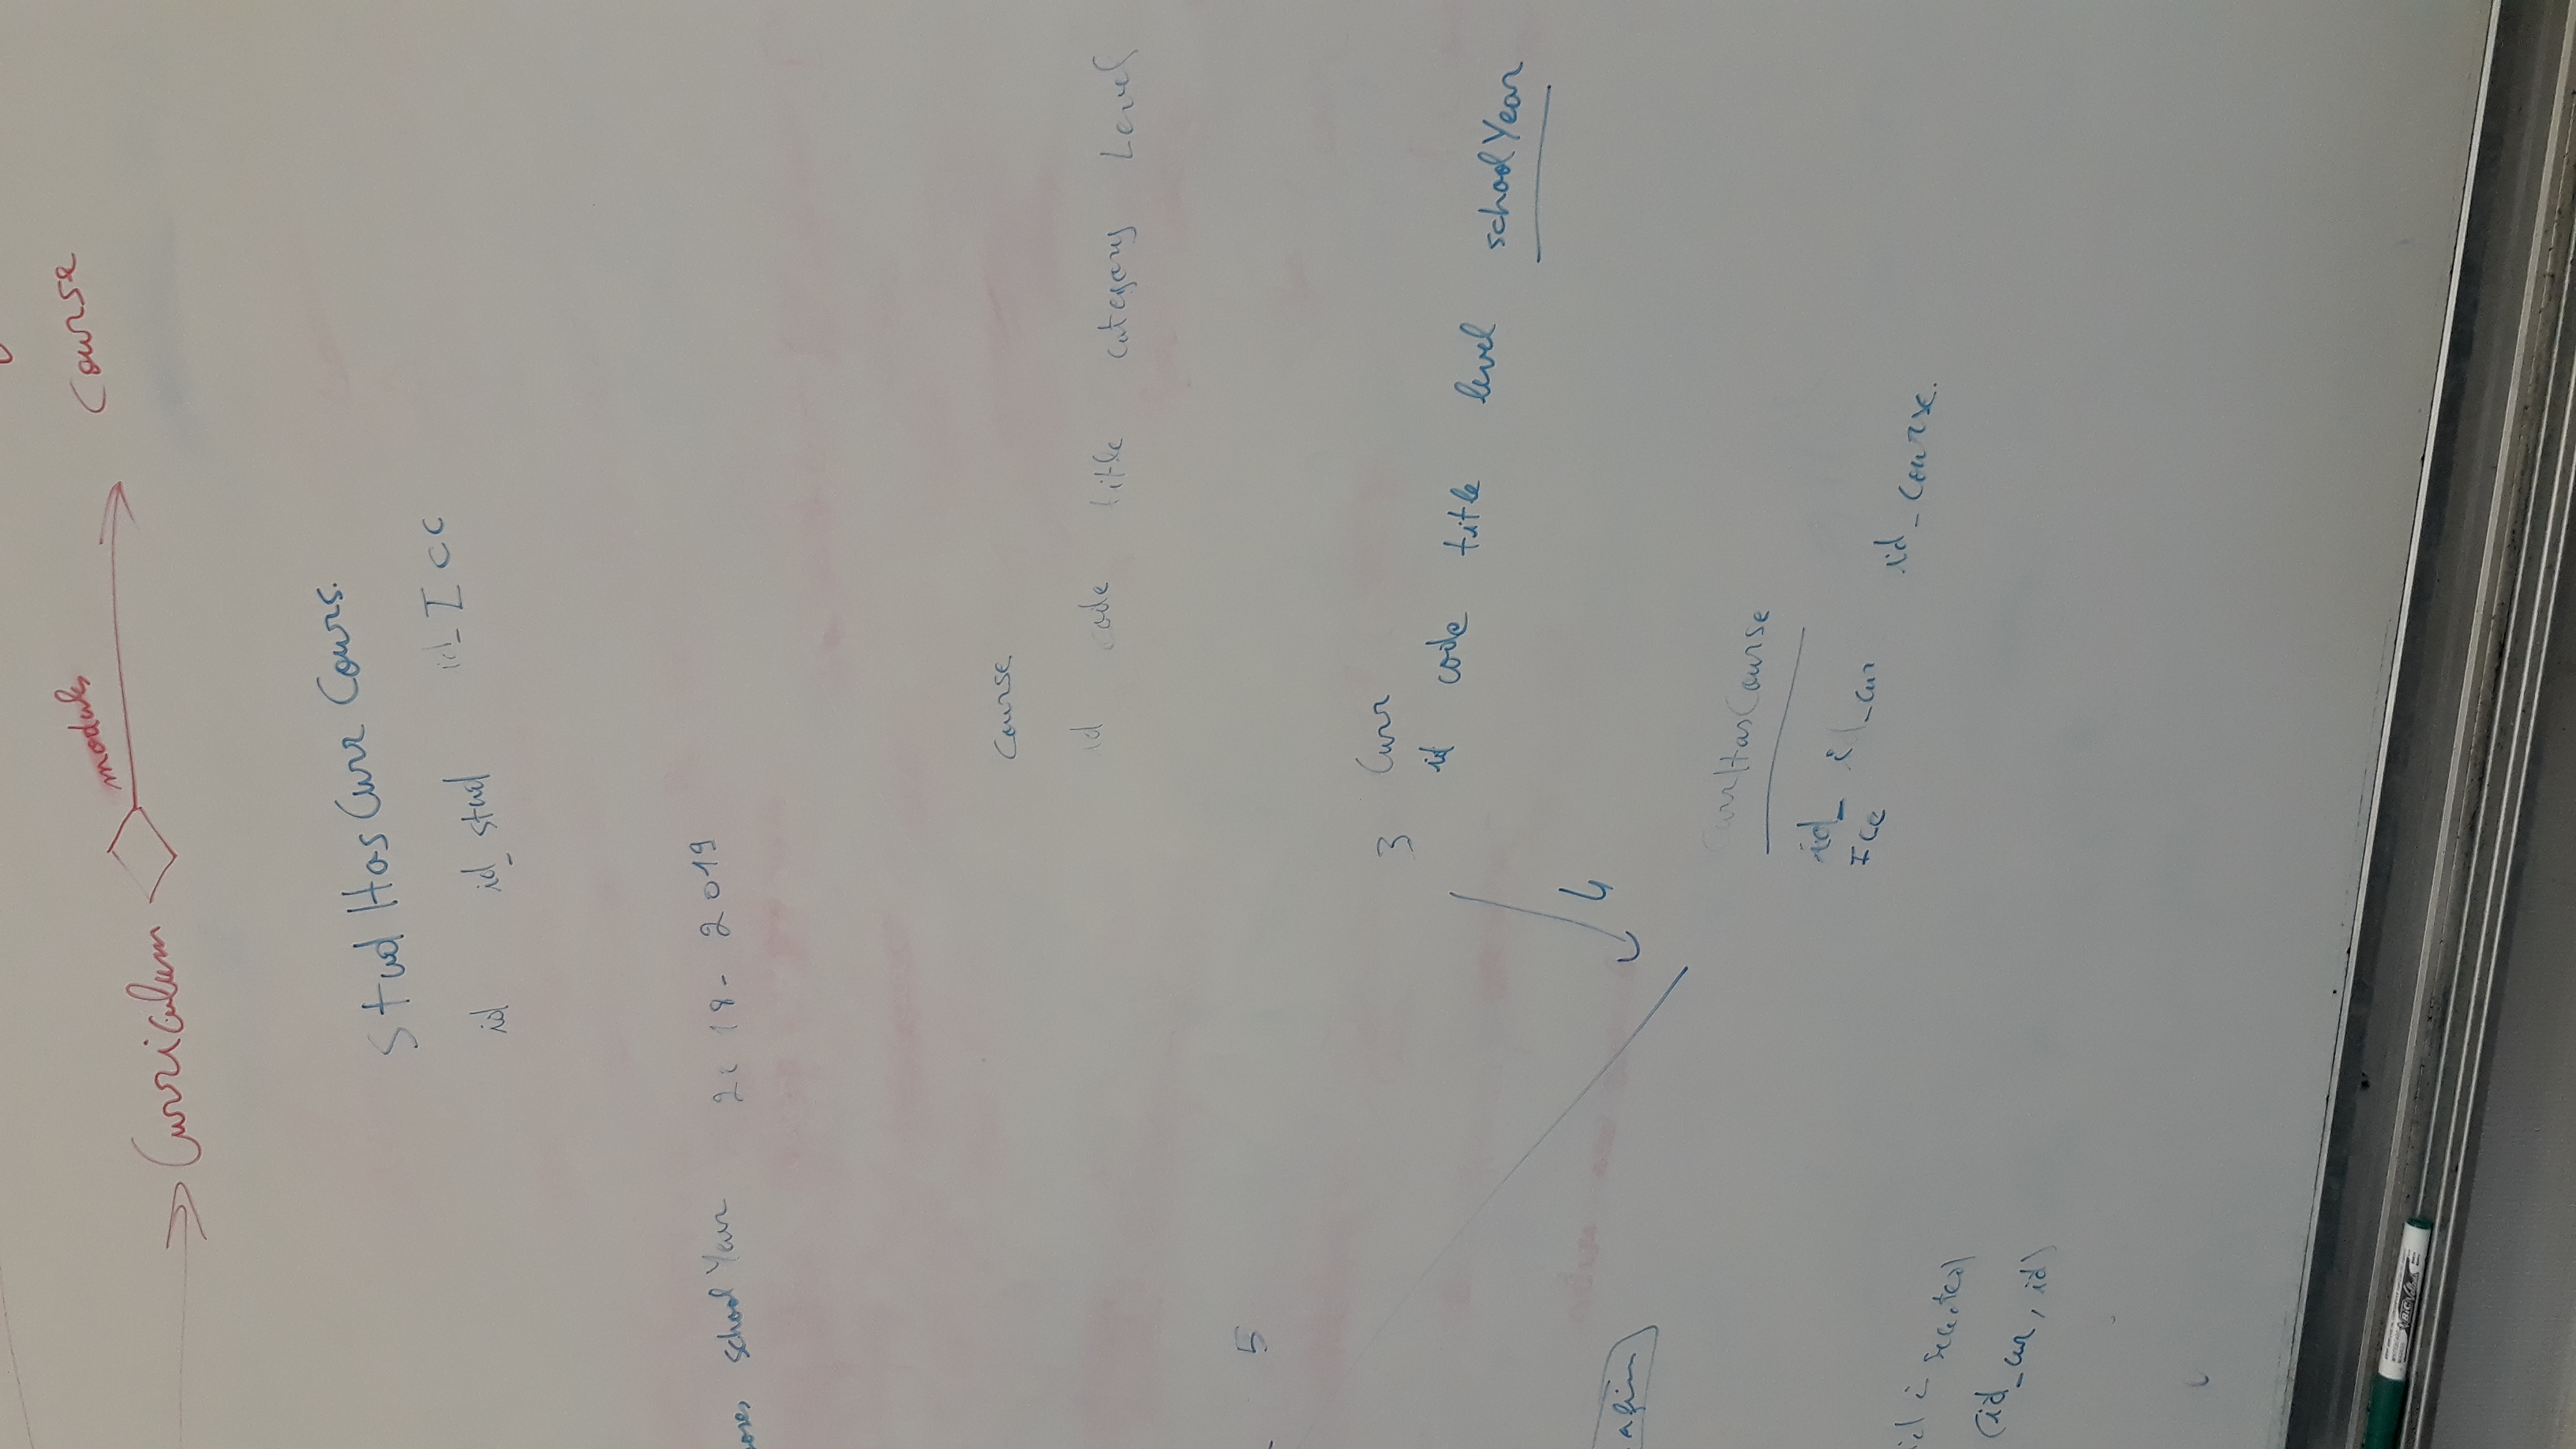 modules
Course
Curriculum
Stud Has Curr Cours.
id id_stud id_ICC
school Year 2018-2019
Course
id code title category Level
5
3 Curr
id code title level schoolYear
4
CurrHasCourse
id_ id_cur id_course.
ICC
(id_cur, id)
BIC Velleda